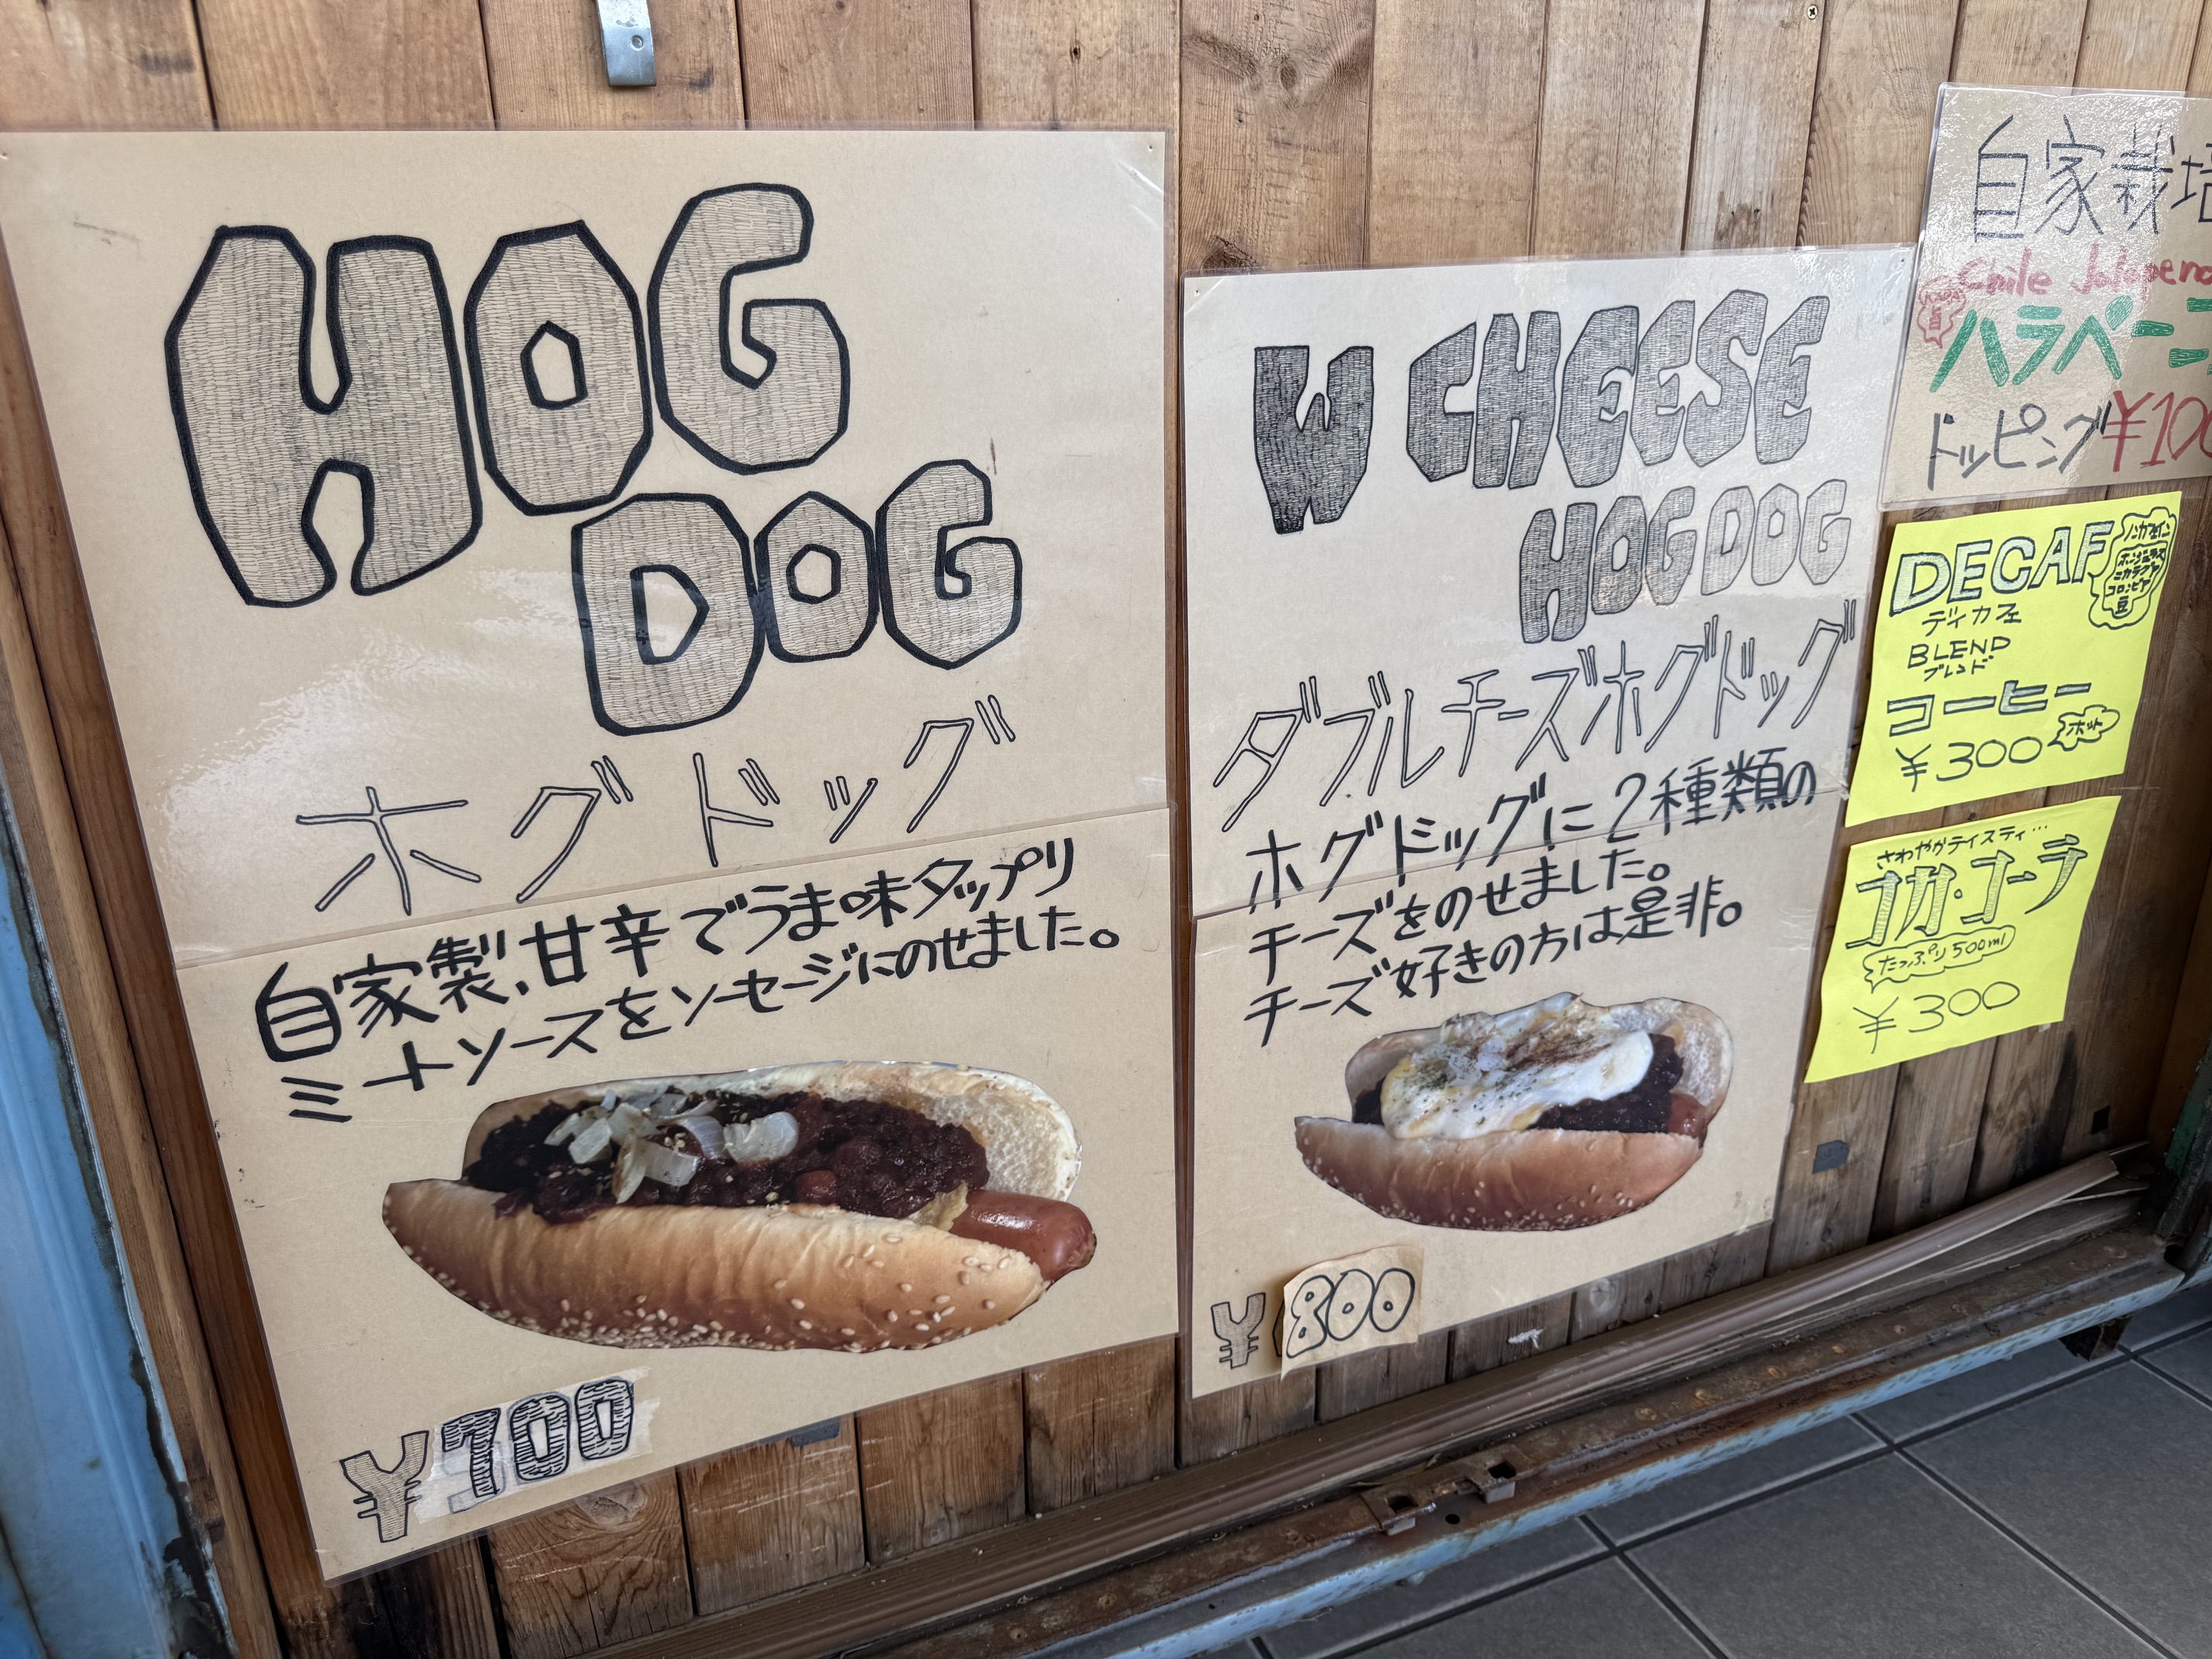 HOG
DOG
ホグドッグ
自家製、甘辛でうま味タップリ
ミートソースをソーセージにのせました。
¥700
W CHEESE
HOG DOG
ダブルチーズホグドッグ
ホグドッグに2種類の
チーズをのせました。
チーズ好きの方は是非。
¥800
自家栽培
Chile Jalapeno
ハラペーニ
トッピング ¥100
DECAF
ノンカフェイン
ディカフェ
BLEND
ブレンド
コーヒー
¥300
さわやかテイスティ…
コカ・コーラ
たっぷり500ml
¥300